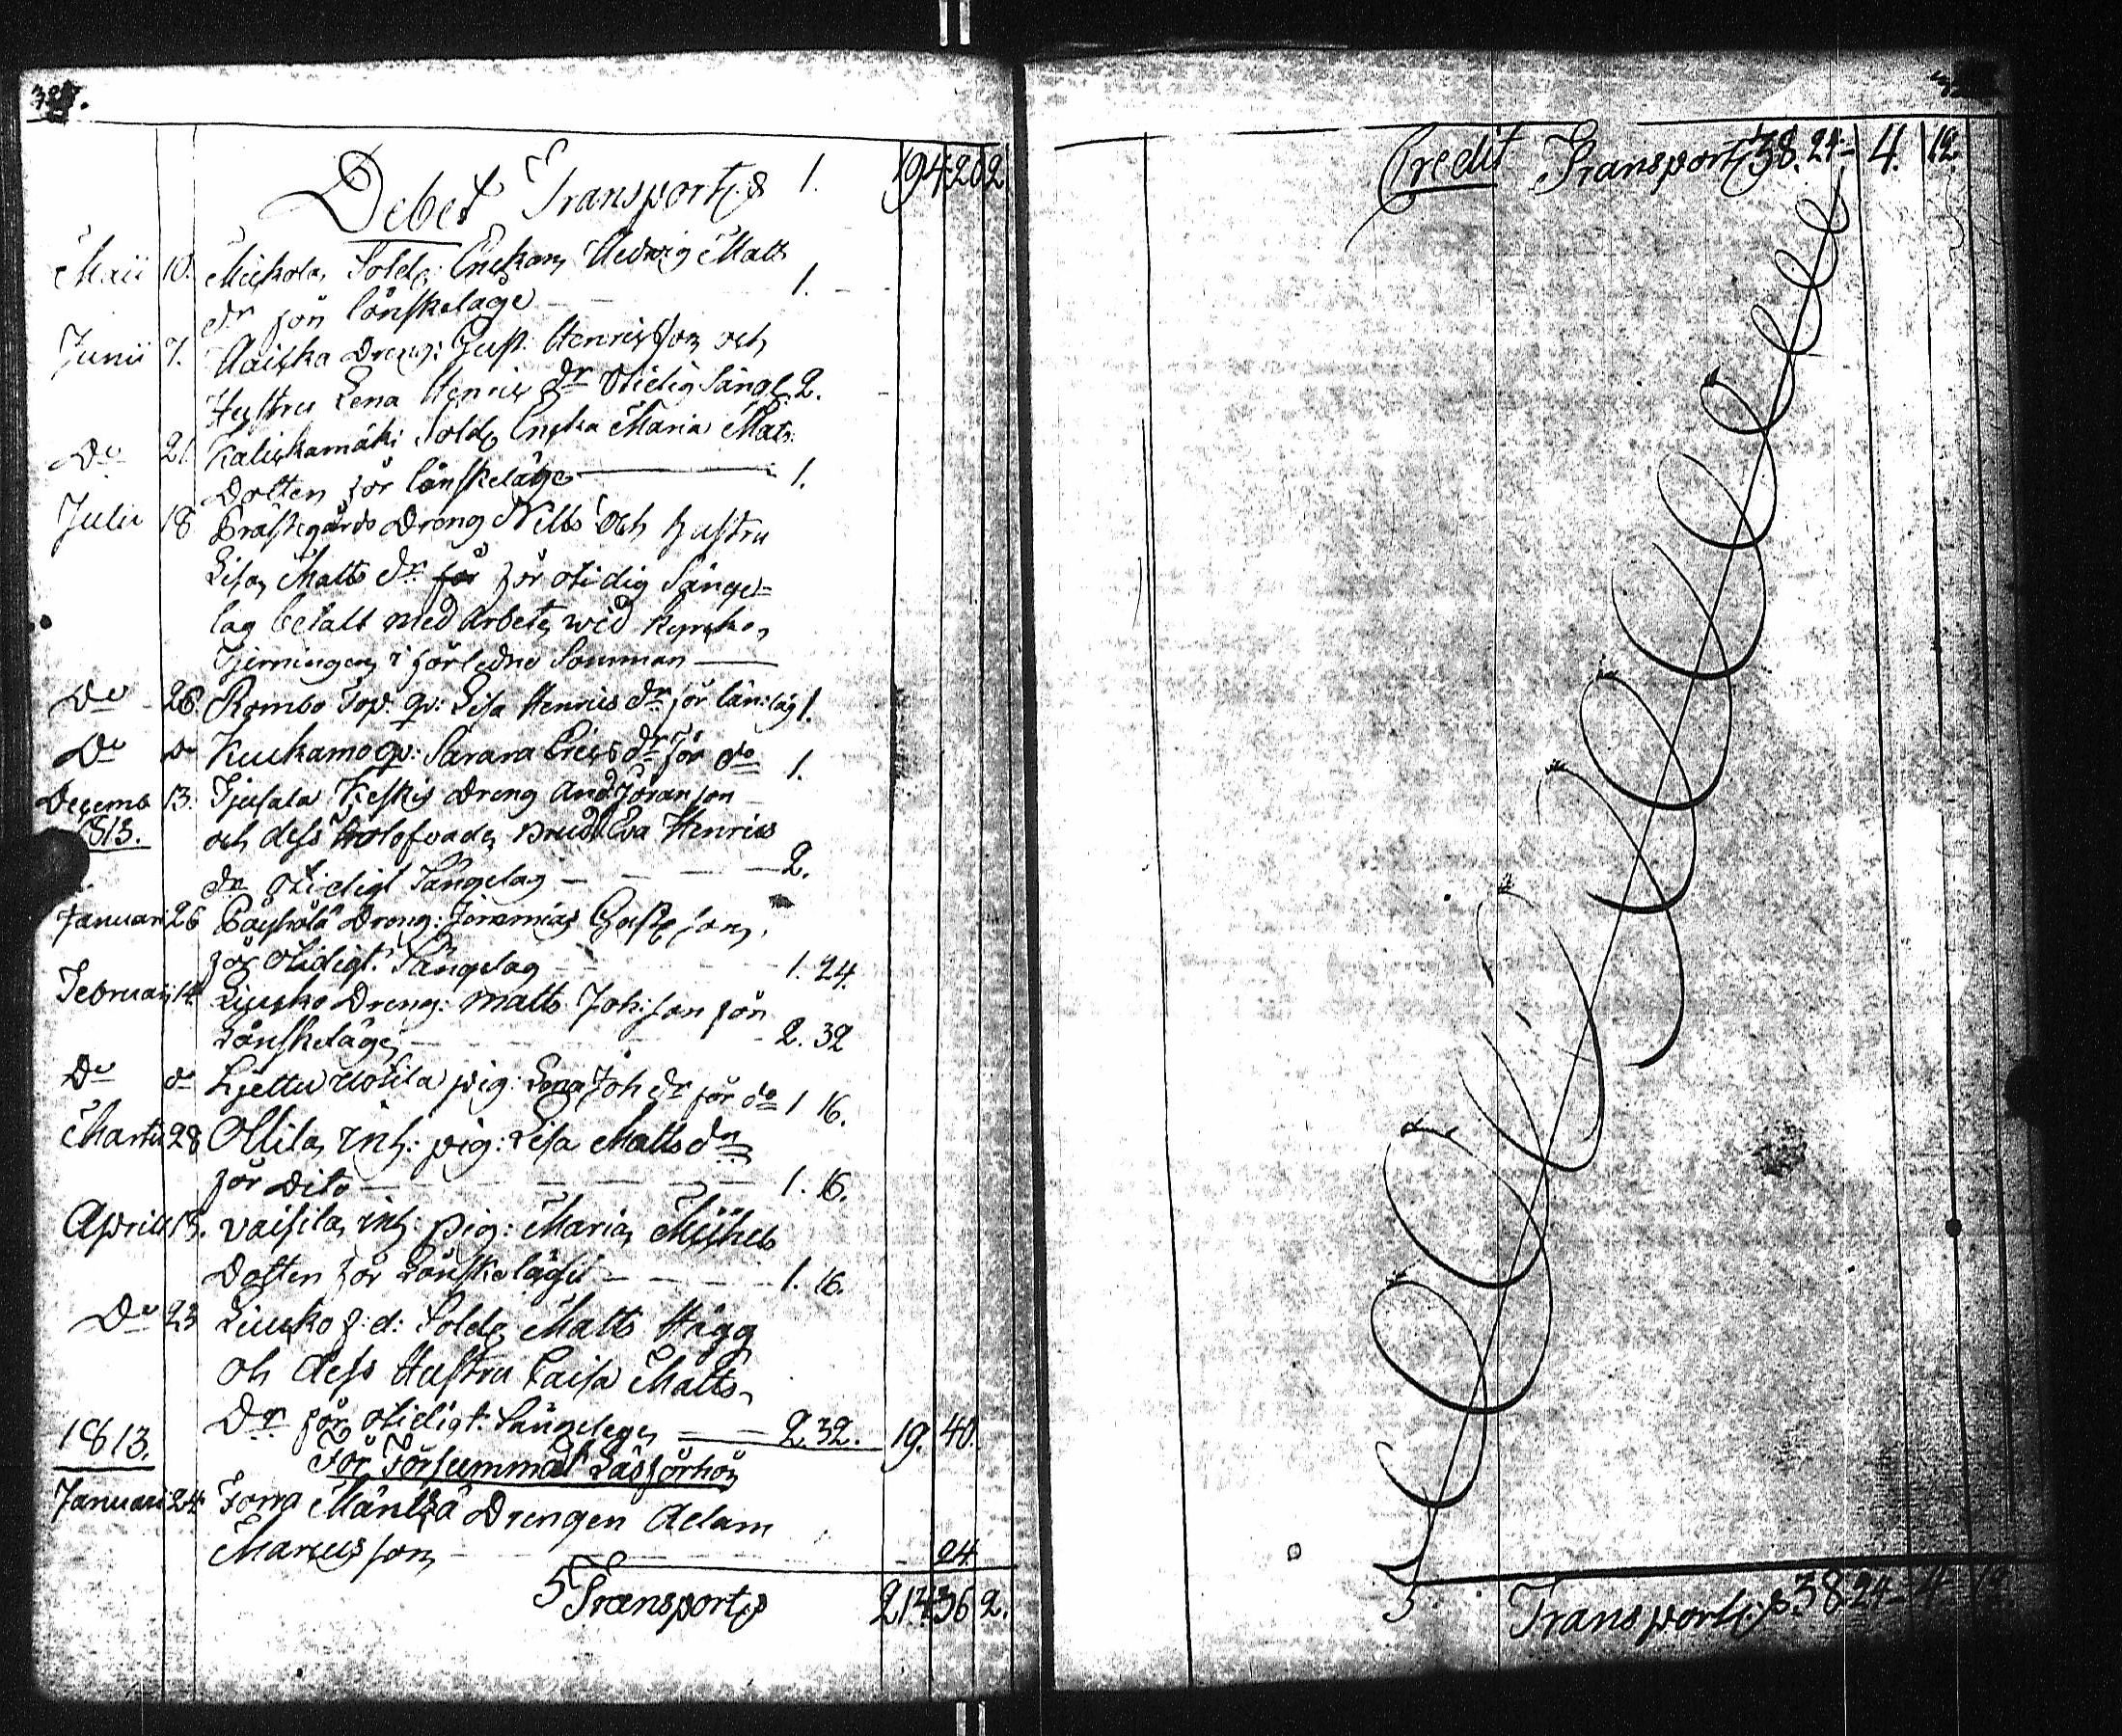 Debet Transport 1. 194 20 2
Maii 10. Sold: Enckan Hedvig Matts
dr för Lönskeläge 1.
Junii 7. Dreng: Gust: Henricsson och
Hustru Lena Henrics dr Otidig Sängl. 2.
Do 21. Solds Encka Maria Mats
Dotten för Lönskeläge 1.
Julii 18 Prästegårds Dreng Nills och hustru
Lisa Matts dr för för otidig Sänge-
lag betalt med arbete wid Kyrko
i förledne Sommar
Do 26. Rombo qv: Lisa Henrics dr för län:läg 1.
Do do Kuckamo qv: Sarara Erics dr för do 1.
Decemb 13. Dreng And Göranson
1813. och dess trolofvade Brud Eva Henrics
dr otidigt Sängelag 2.
Januari 26 Dreng: Jeremias Gust son
för Otidigt. Sängelag 1. 24.
Februari 14 Liusko Dreng: Matts Joh:son för
Lönskeläge 2. 32
Do do pig: Lena Joh dr för do 1 16.
Martii 28 Ollila inh: pig: Lisa Matts dr
för Dito 1. 16.
Aprill 13. Vaisila inh: Pig: Maria Michels
Dotten för Lönskeläge 1. 16.
Do 23 Liusko f: d: Sold Matts Hägg
och dess Hustru Caisa Matts
Dr för otidigt. Sängelag 2. 32. 19. 40.
1813. För Försummat Läsförhör
Januari 24 Mäntzä Drengen Adam
Marcusson 24
5 Transport 214 36 2.
Credit Transport 38. 24 4. 12
Transport 38 24 4 12